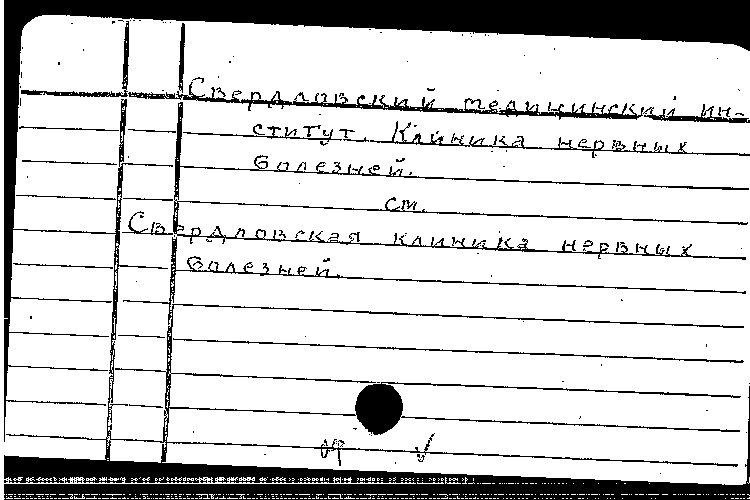 Свердловский медицинский ин-
ститут. Клиника нервных
болезней.
см.
Свердловская клиника нервных
болезней.